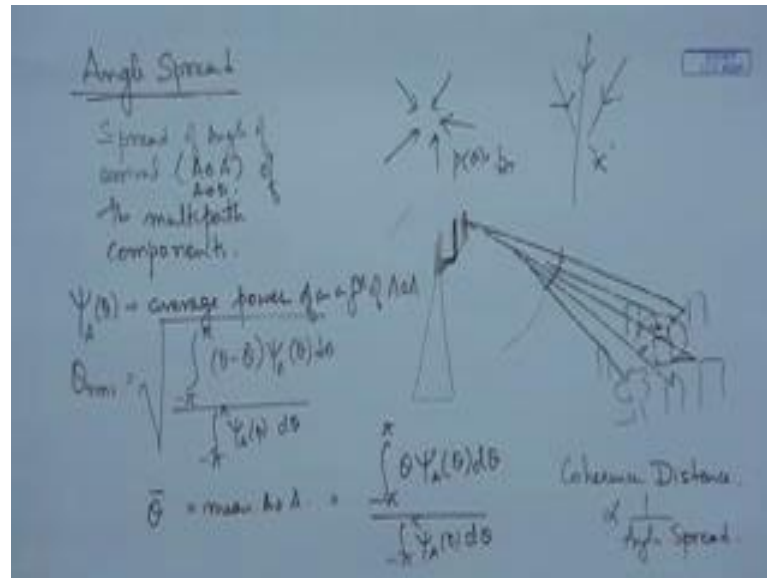 Angle Spread
Spread of Angle of
arrival (AoA) of
AoD
the multipath
components.
p(θ) =
x
Ψ_A(θ) → average power as a fⁿ of AoA
θ_rms = √( ∫_{-π}^{π} (θ-θ̄) Ψ_A(θ) dθ / ∫_{-π}^{π} Ψ_A(θ) dθ )
θ̄ = mean AoA = ∫_{-π}^{π} θ Ψ_A(θ) dθ / ∫_{-π}^{π} Ψ_A(θ) dθ
Coherence Distance
∝ 1 / Angle Spread.